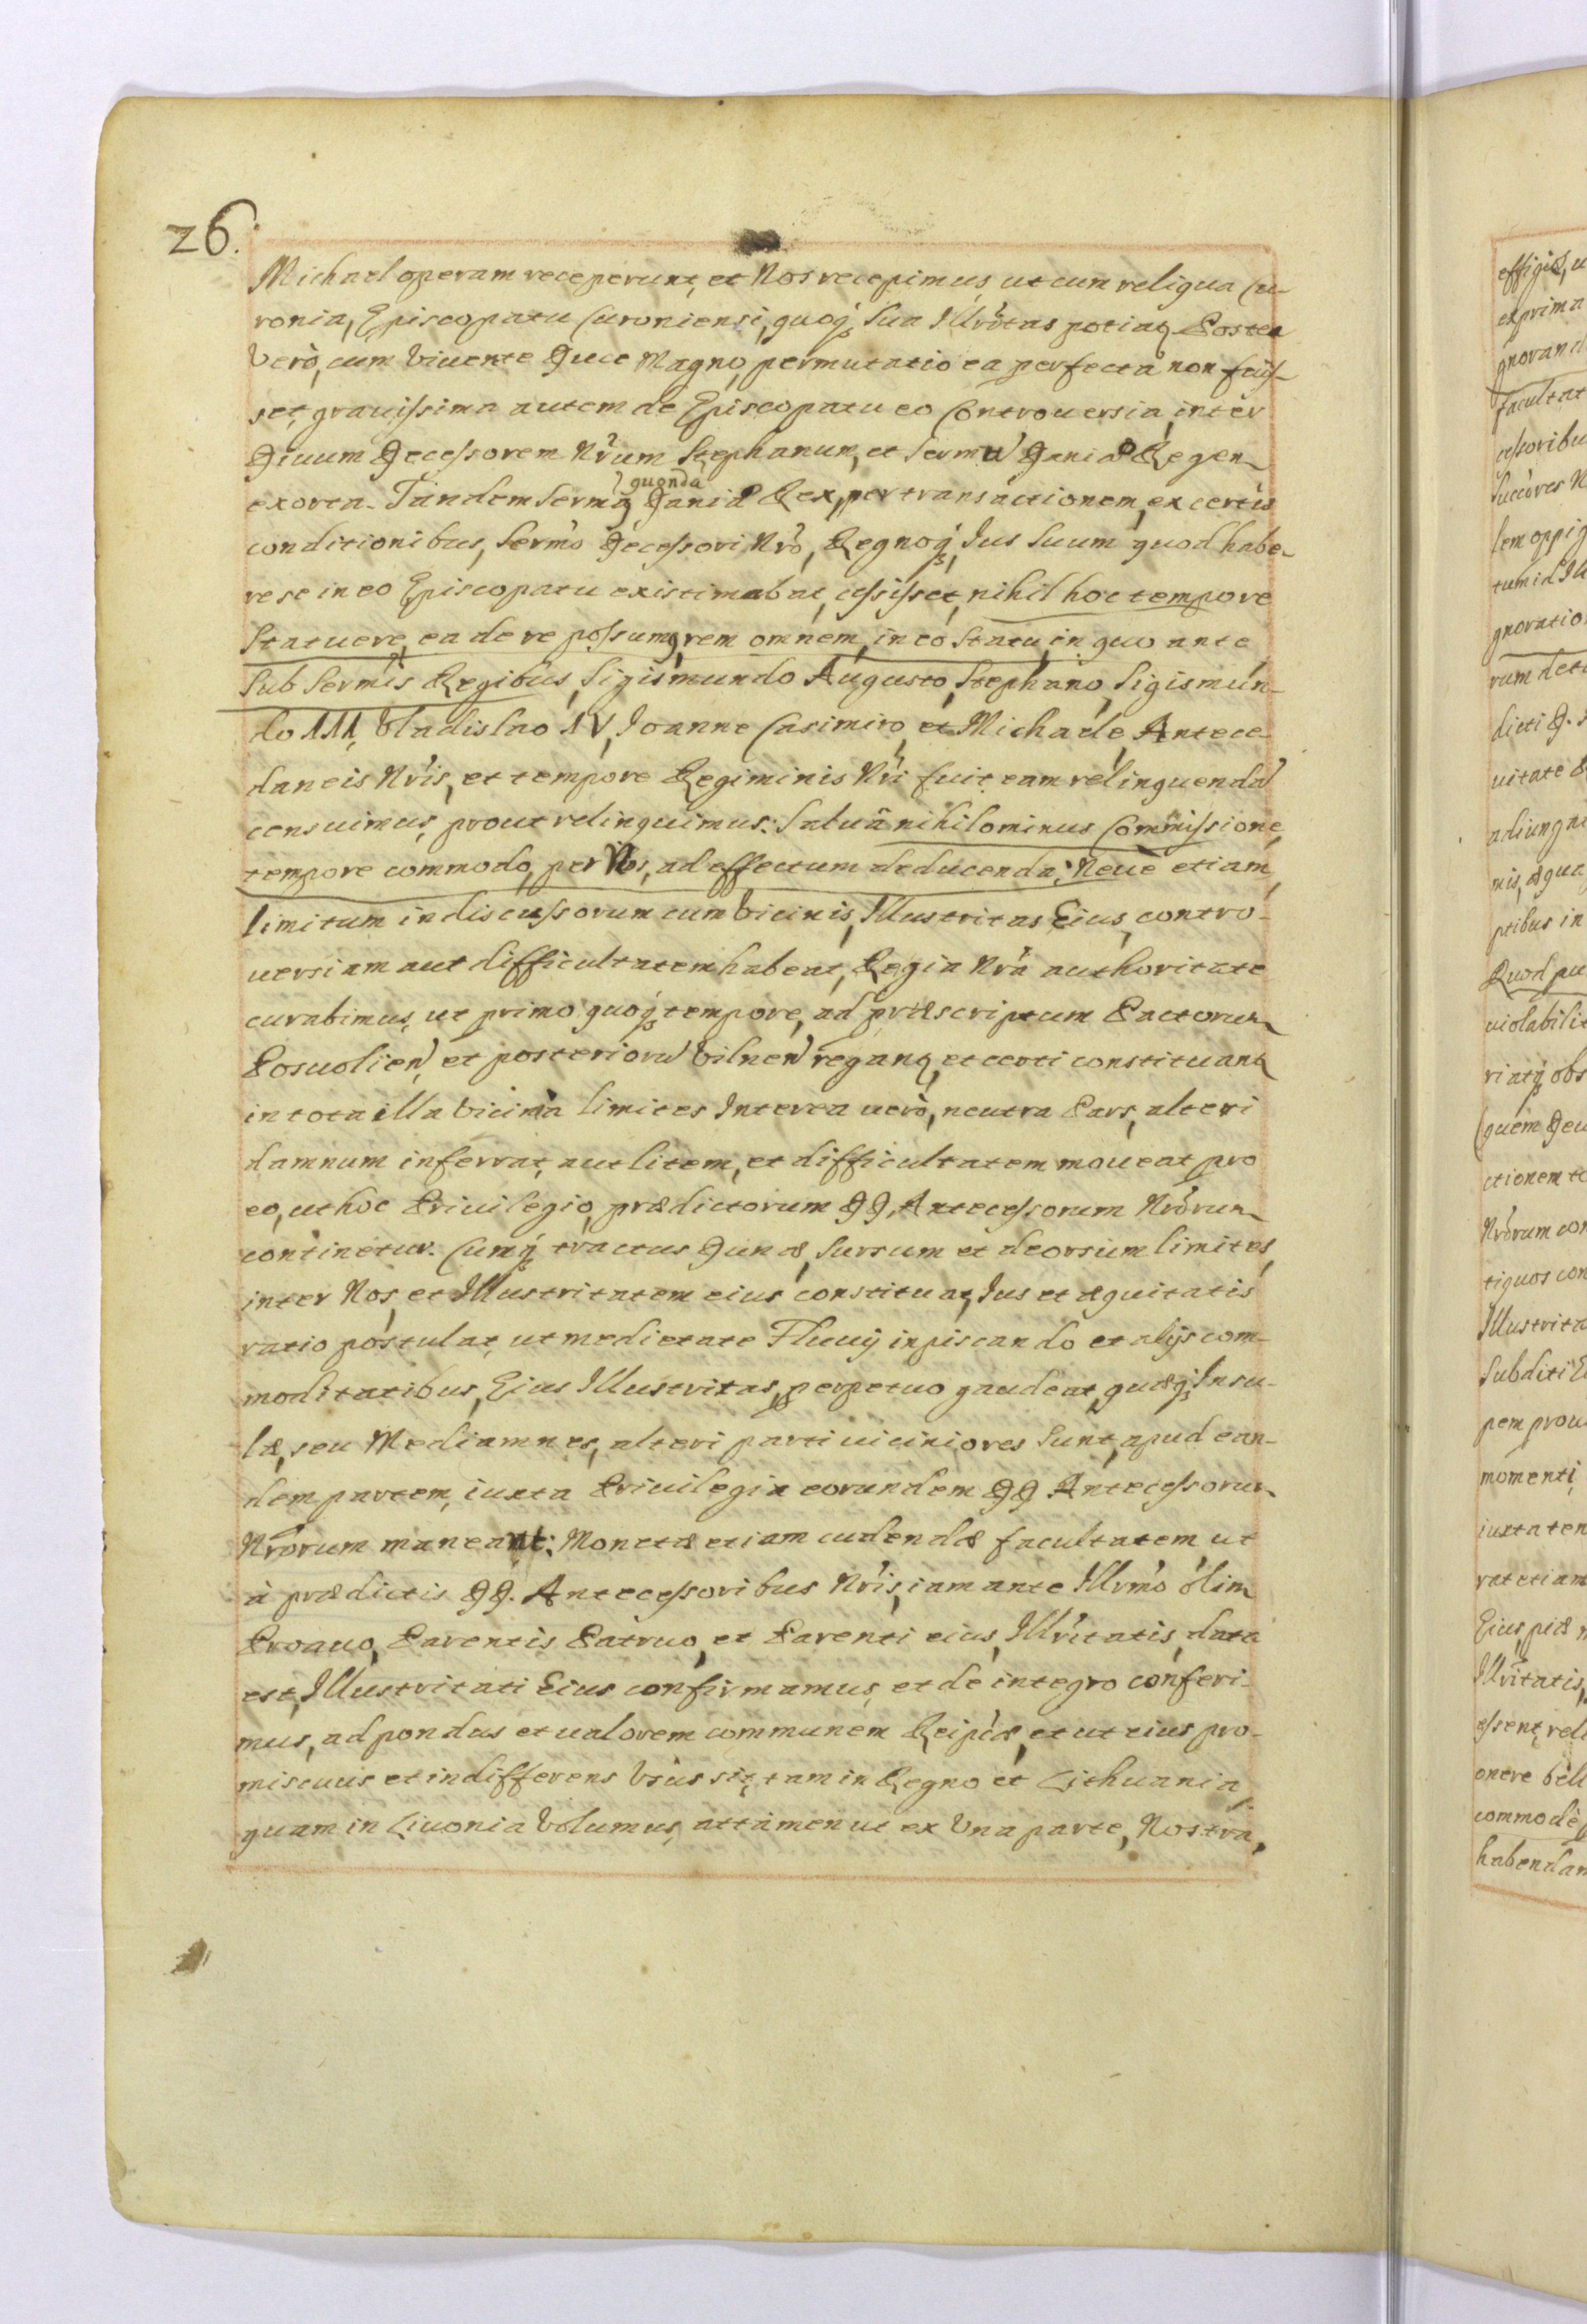 26.
Michael operam receperunt, et Nos recepimus, ut cum reliqua Cu-
ronia, Episcopatu Curoniensi, quoq; Sua Illrtas potiat. Postea
Verò, cum Vivente Duce Magno, permutatio ea perfecta non fuis-
set, grauissima autem de Episcopatu eo Controuersia, inter
Diuum Decessorem Nrum Stephanum, et Sermu Daniæ Regem
quonda
exorta. Tandem Sermq Daniæ Rex, per transactionem, ex certis
conditionibus, Sermo Decessori Nro, Regnoq; Jus Suum quod habe-
re se in eo Episcopatu existimabat, cessisset, nihil hoc tempore
Statuere, ea de re possumq, rem omnem, in eo Statu, in quo ante
Sub Sermis Regibus, Sigismundo Augusto, Stephano, Sigismun-
do III, Vladislao IV, Joanne Casimiro, et Michaele, Antece-
daneis Nris, et tempore Regiminis Nri fuit, eam relinquenda
censuimus, prout relinquimus: Saluâ nihilominus Commissione,
tempore commodo, per Nos, ad effectum deducenda; Neue etiam
limitum indiscussorum cum Vicinis, Illustritas Eius, contro-
uersiam aut difficultatem habeat, Regia Nra authoritate
curabimus, ut primo quoq; tempore, ad præscriptum Pactorum
Posuolien, et posterioru Vilnen regant, et certi constituant
in tota illa Vicinia limites Interea uerò, neutra Pars, alteri
damnum inferrat, aut litem, et difficultatem moueat pro
eo, ut hoc Priuilegio, prædictorum DD. Antecessorum Nrorum
continetur. Cumq; tractus Dunæ, Sursum et deorsum limites,
inter Nos, et Illustritatem eius constituat, Jus et æquitatis
ratio postulat, ut medietate Fluuij in piscando et alijs com-
moditatibus, Eius Illustritas, perpetuo gaudeat, quæq; Insu-
læ, seu Mediamnes, alteri parti uiciniores Sunt, apud ean-
dem partem, iuxta Priuilegia eorundem DD Antecessorum
Nrorum maneant: Monetæ etiam cudendæ facultatem ut
à prædictis DD. Antecessoribus Nris, iam ante Illrmo olim
Proauo, Parentis Patruo, et Parenti eius, Illritatis, data
est, Illustritati Eius confirmamus, et de integro conferi-
mus, ad pondus et ualorem communem Reipcæ, et ut eius pro-
miscuus et indifferens Vsus sit, tam in Regno et Lithuania
quam in Liuonia Volumus, attamen ut ex Vna parte, Nostra,